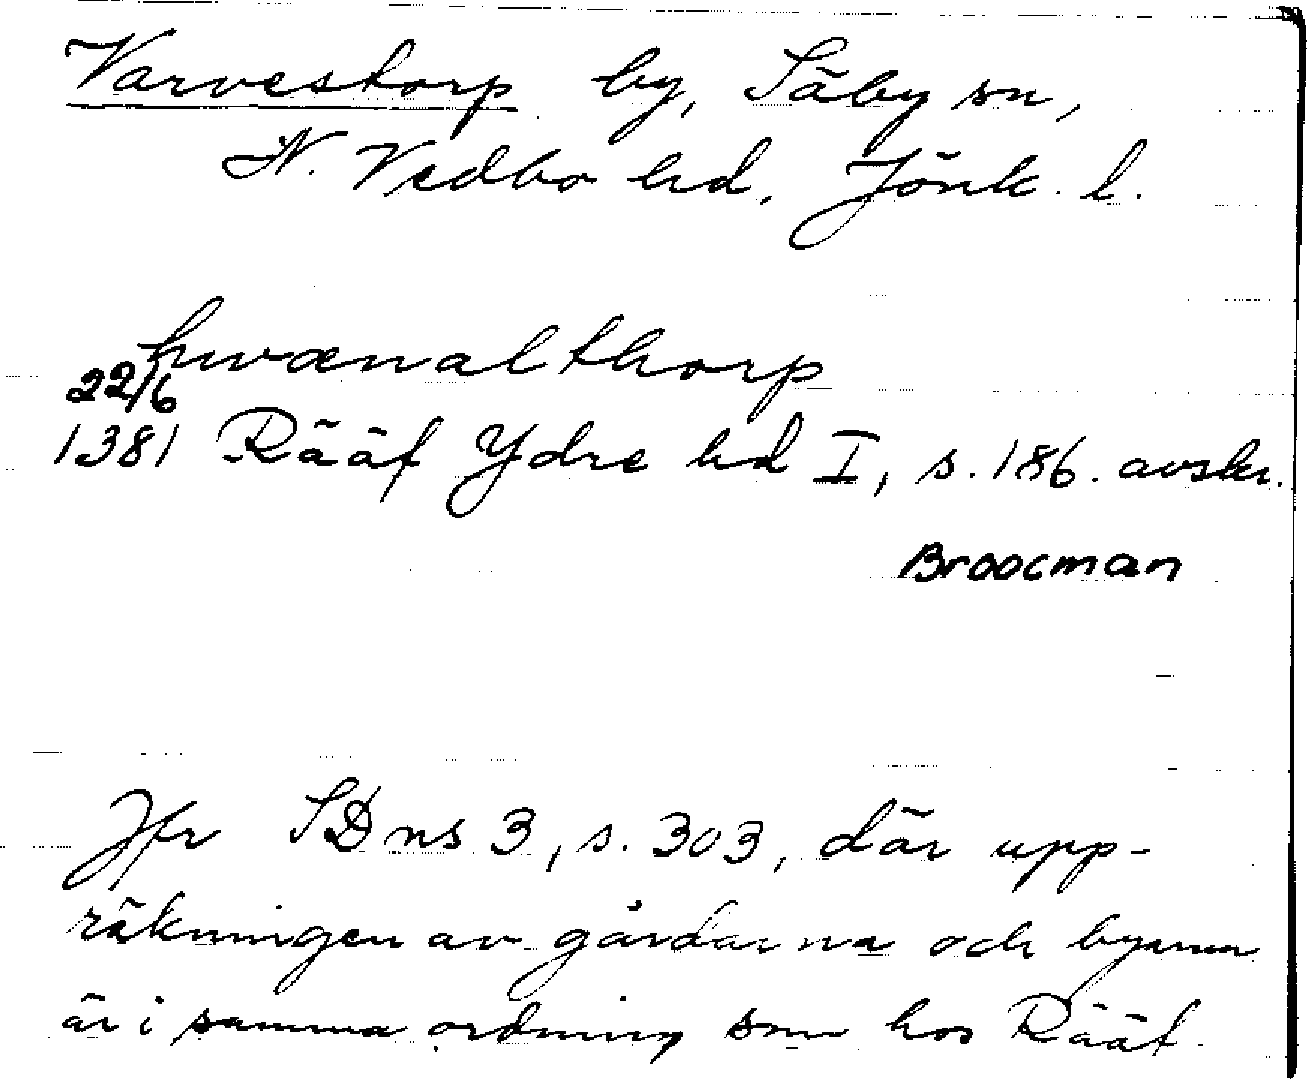 Varvestorp by, Säby sn,
N. Vedbo hd, Jönk. l.
hwænalthorp
22/6
1381 Rääf Ydre hd I, s. 186. avskr.
Broocman
Jfr SD ns 3, s. 303, där upp-
räkningen av gårdarna och byarna
är i samma ordning som hos Rääf.